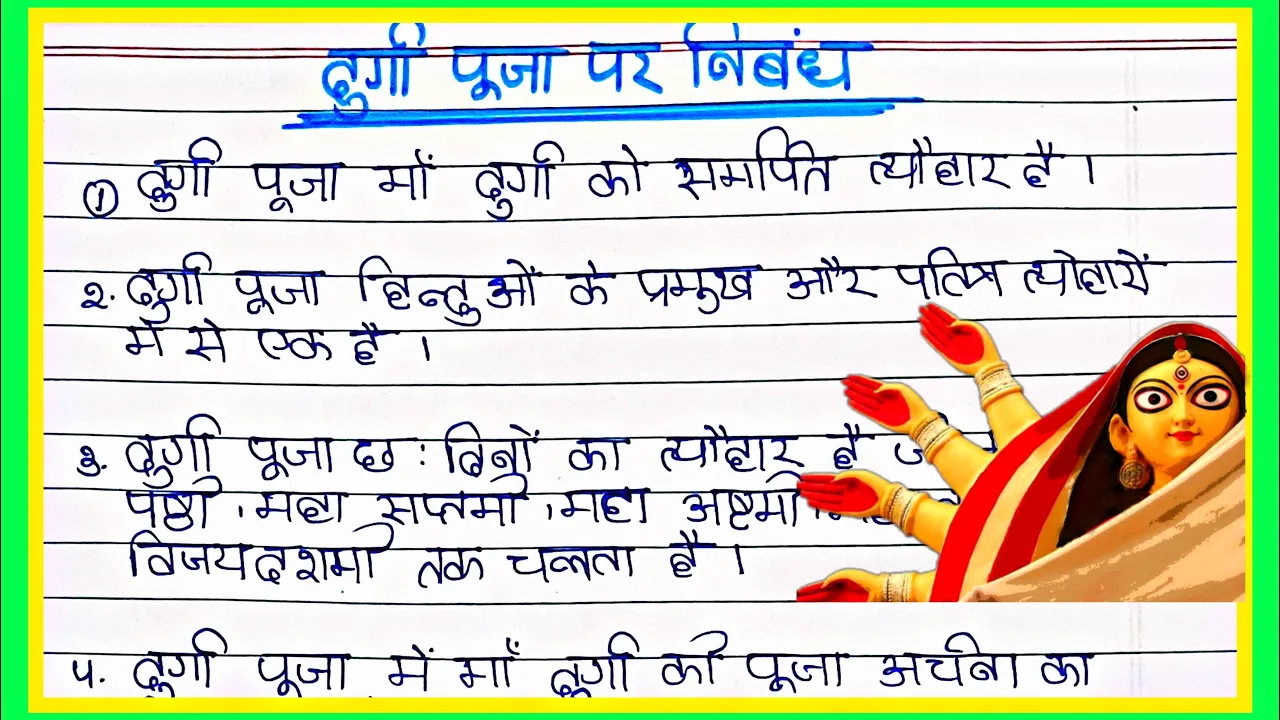 दुर्गा पूजा पर निबंध
① दुर्गा पूजा माँ दुर्गा को समर्पित त्यौहार है ।
२. दुर्गा पूजा हिन्दुओं के प्रमुख और पवित्र त्योहारों
में से एक है ।
३. दुर्गा पूजा छः दिनों का त्यौहार है
षष्ठी, महा सप्तमी, महा अष्टमी
विजयदशमी तक चलता है ।
4. दुर्गा पूजा में माँ दुर्गा की पूजा अर्चना का